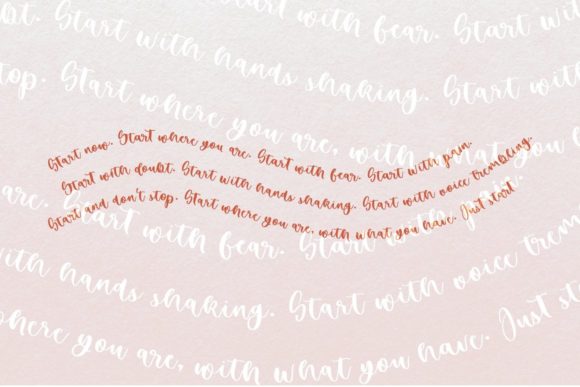 Start with fear. Start
Start with hands shaking. Start with
stop. Start where you are, with what you have.
Start now. Start where you are. Start with fear. Start with pain.
Start with doubt. Start with hands shaking. Start with voice trembling.
Start and don't stop. Start where you are, with what you have. Just start.
are. Start with fear. Start with pain.
with hands shaking. Start with voice
where you are, with what you have. Just